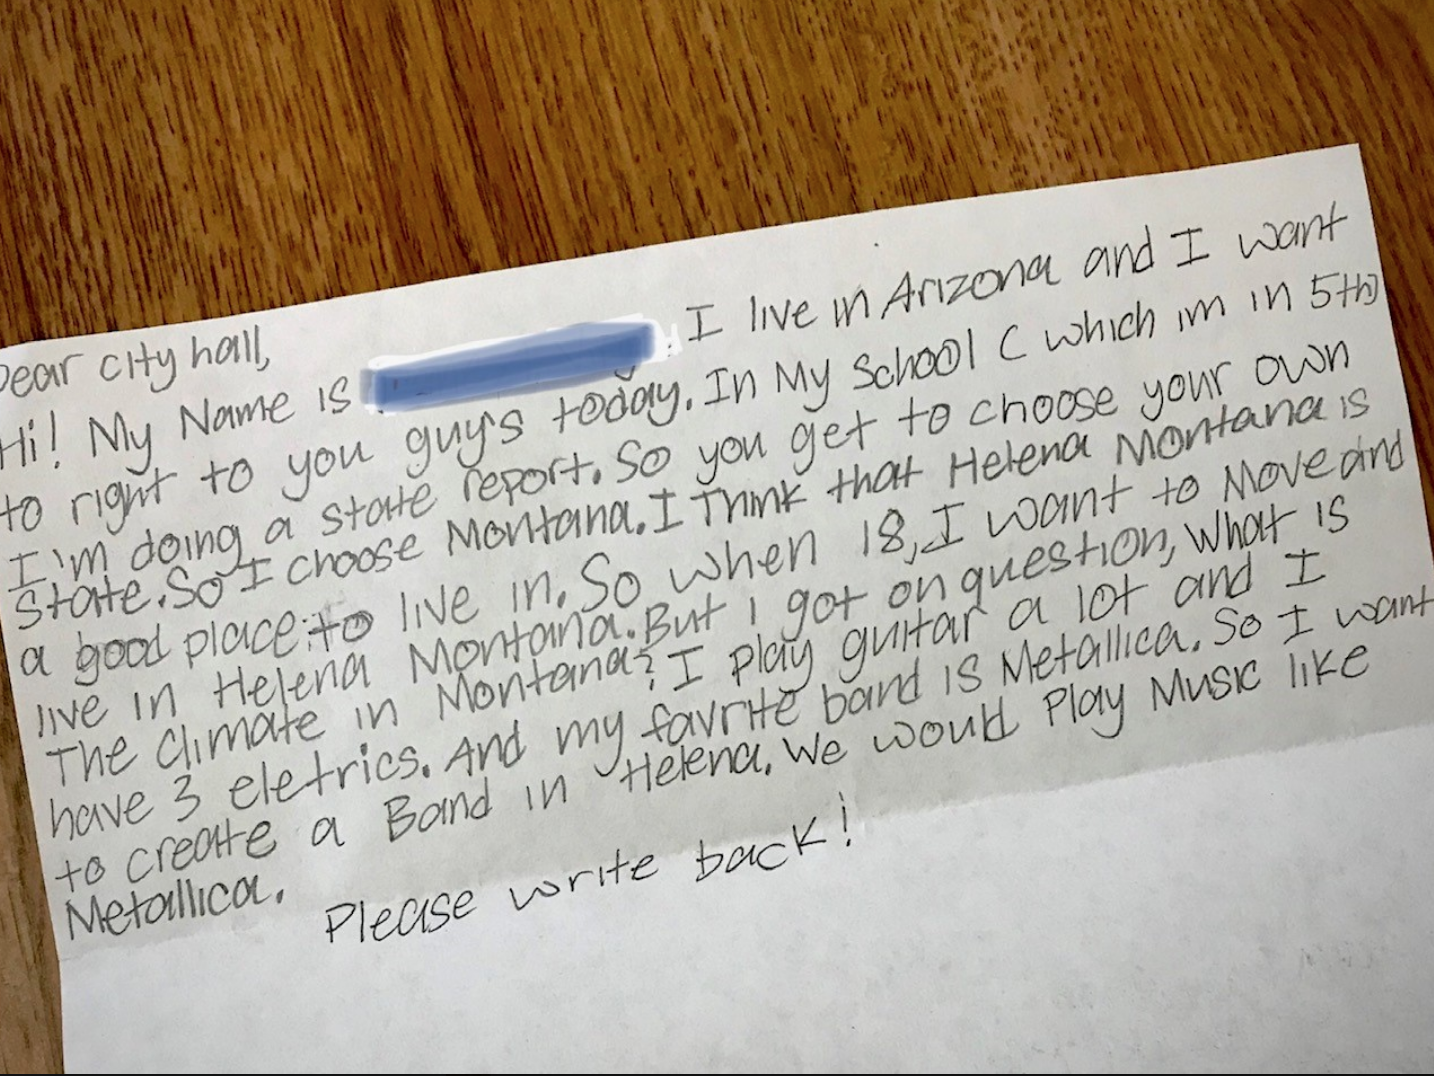 Dear city hall,
Hi! My Name is I live in Arizona and I want
to right to you guys today. In My School ( which im in 5th)
I'm doing a state report. So you get to choose your own
state. So I choose Montana. I Think that Helena Montana is
a good place to live in. So when 18, I want to Move and
live in Helena Montana. But I got on question, What is
The climate in Montana? I play guitar a lot and I
have 3 eletrics. And my favrite band is Metallica. So I want
to create a Band in Helena. We would Play Music like
Metallica.
Please write back!